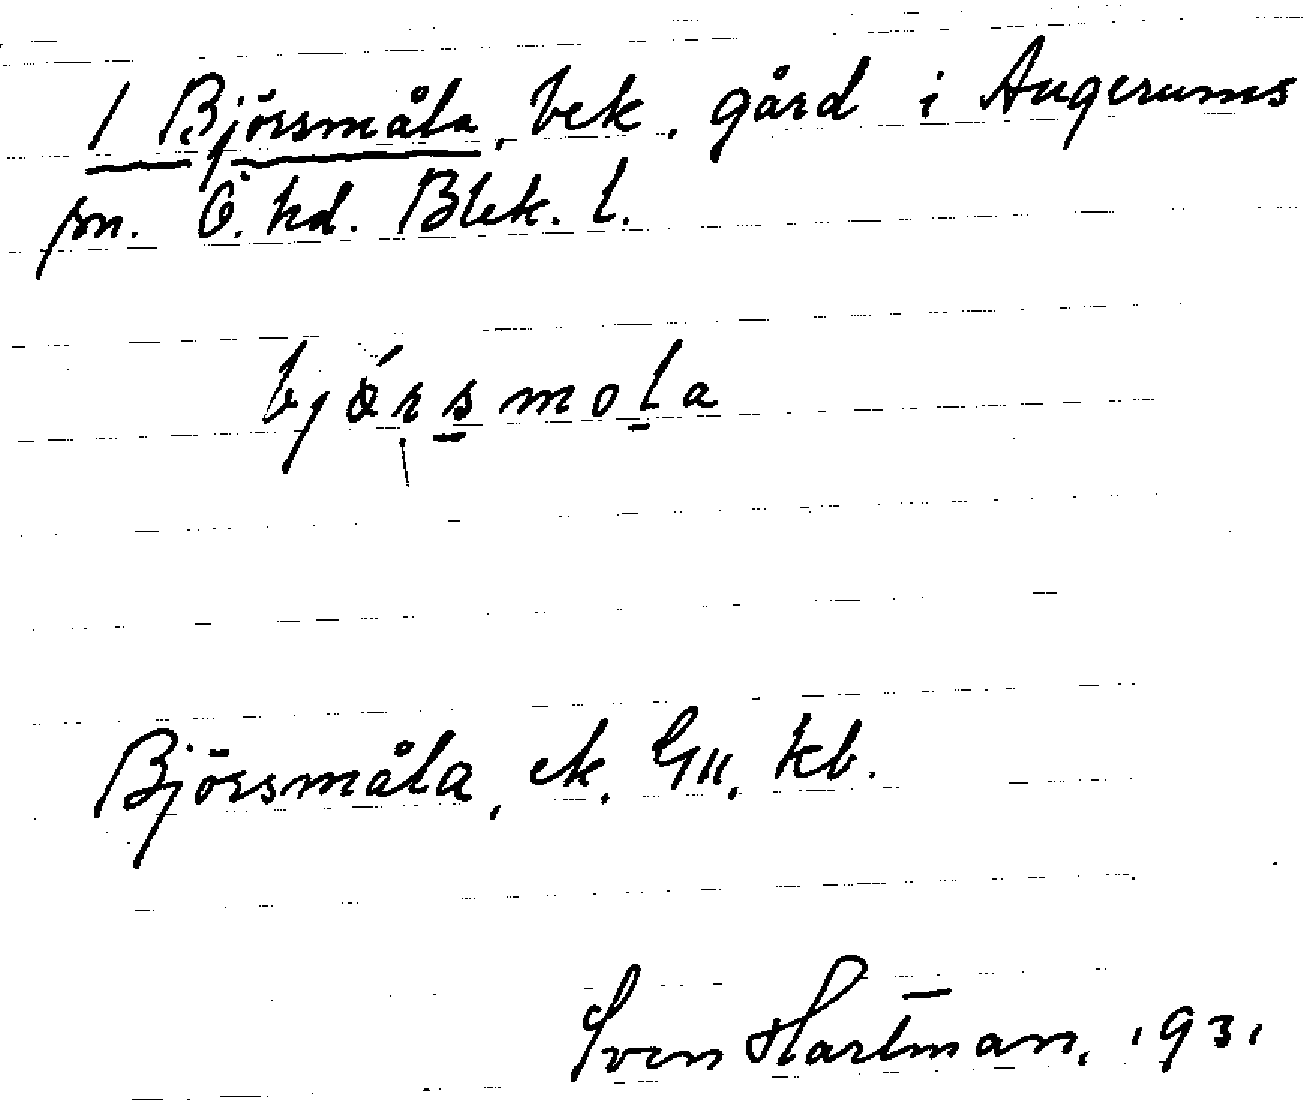 1 Björsmåla, bek. gård i Augerums
sn. Ö. hd. Blek. l.
björsmola
Björsmåla, ek. Gll. kb.
Sven Hartman, 1931